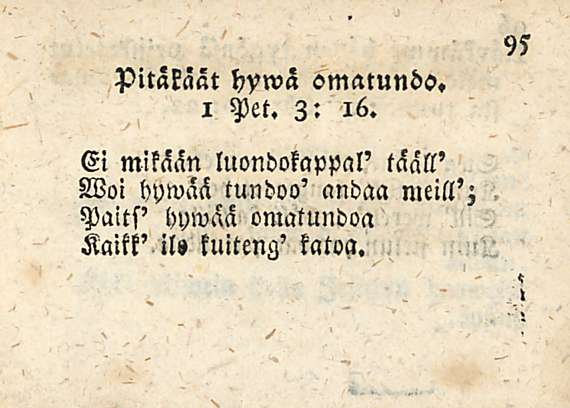 95
Pitäkäät hywä omatundo.
1 Pet. 3: 16.
Ei mikään luondokappal' tääll'
Woi hywää tundoo' andaa meill';
Paits' hywää omatundoa
Kaikk' ilo kuiteng' katoa.